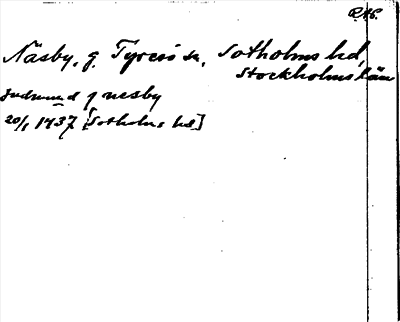 RAp.
Näsby, g. Tyresö sn, Sotholms hd,
Stockholms län
Gudmund j nesby
20/1 1437 [Sotholms hd]